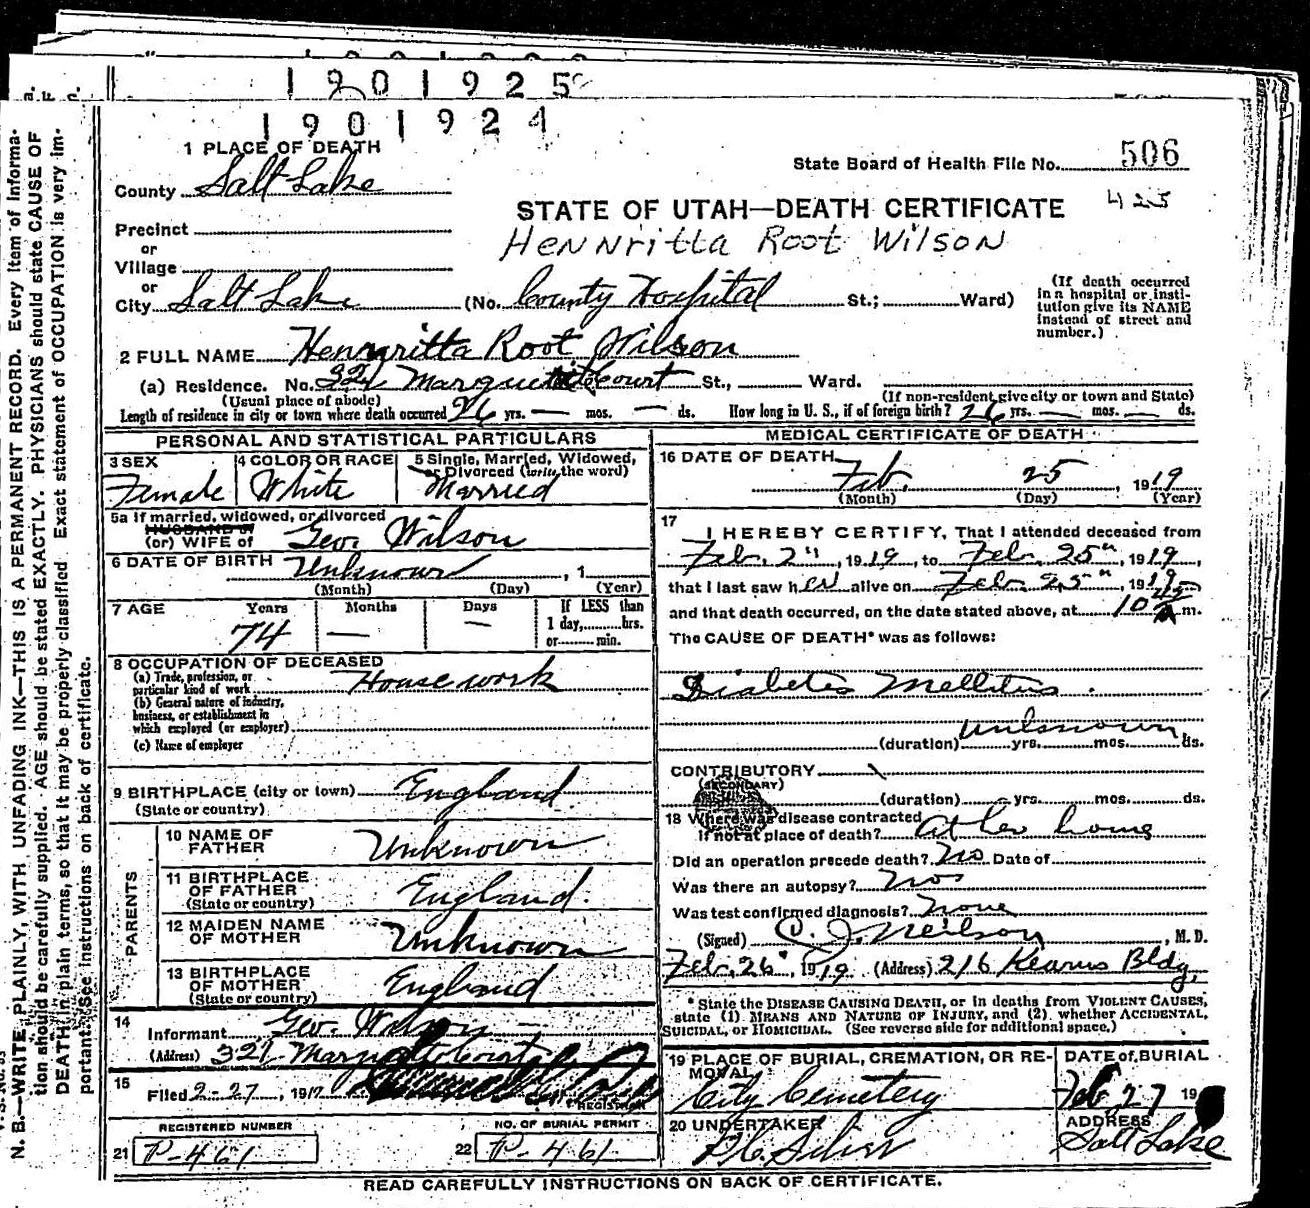 1901925
1901924
1 PLACE OF DEATH
State Board of Health File No. 506
County Salt Lake
425
STATE OF UTAH—DEATH CERTIFICATE
Precinct
Hennritta Root Wilson
or
Village
or
City Salt Lake (No. County Hospital St.; Ward)
(If death occurred in a hospital or insti-
tution give its NAME
instead of street and
number.)
2 FULL NAME Hennritta Root Wilson
(a) Residence. No. 321 Court St., Ward.
(Usual place of abode) (If non-resident give city or town and State)
Length of residence in city or town where death occurred 26 yrs. — mos. — ds. How long in U. S., if of foreign birth? 26 yrs. — mos. — ds.
PERSONAL AND STATISTICAL PARTICULARS
3 SEX 4 COLOR OR RACE 5 Single, Married, Widowed,
or Divorced (write the word)
Female White Married
5a If married, widowed, or divorced
HUSBAND of
(or) WIFE of Geo. Wilson
6 DATE OF BIRTH Unknown , 1
(Month) (Day) (Year)
7 AGE Years Months Days If LESS than
1 day, hrs.
or min.
74 — —
8 OCCUPATION OF DECEASED
(a) Trade, profession, or
particular kind of work House work
(b) General nature of industry,
business, or establishment in
which employed (or employer)
(c) Name of employer
9 BIRTHPLACE (city or town) England
(State or country)
PARENTS
10 NAME OF
FATHER Unknown
11 BIRTHPLACE
OF FATHER England.
(State or country)
12 MAIDEN NAME
OF MOTHER Unknown
13 BIRTHPLACE
OF MOTHER England
(State or country)
14
Informant Geo. Wilson
(Address) 321 Court
15
Filed 2-27, 191
REGISTRAR
REGISTERED NUMBER NO. OF BURIAL PERMIT
21 P-461 22 P-461
MEDICAL CERTIFICATE OF DEATH
16 DATE OF DEATH
Feb. 25, 1919
(Month) (Day) (Year)
17
I HEREBY CERTIFY, That I attended deceased from
Feb. 2", 1919, to Feb. 25", 1919,
that I last saw her alive on Feb. 25", 1919
and that death occurred, on the date stated above, at 10 45 A m.
The CAUSE OF DEATH* was as follows:
Diabetes Mellitus.
unknown
(duration) yrs. mos. ds.
CONTRIBUTORY
(SECONDARY)
(duration) yrs. mos. ds.
18 Where was disease contracted
if not at place of death? at her home
Did an operation precede death? No Date of
Was there an autopsy? no
Was test confirmed diagnosis? none
(Signed) C. J. Neilson, M. D.
Feb. 26, 1919 (Address) 216 Kearns Bldg.
* State the DISEASE CAUSING DEATH, or in deaths from VIOLENT CAUSES,
state (1) MEANS AND NATURE OF INJURY, and (2) whether ACCIDENTAL,
SUICIDAL, or HOMICIDAL. (See reverse side for additional space.)
19 PLACE OF BURIAL, CREMATION, OR RE-
MOVAL
City Cemetery
DATE of BURIAL
Feb 27 19
20 UNDERTAKER
ADDRESS
Salt Lake
READ CAREFULLY INSTRUCTIONS ON BACK OF CERTIFICATE.
N. B.—WRITE PLAINLY, WITH UNFADING INK—THIS IS A PERMANENT RECORD. Every item of informa-
tion should be carefully supplied. AGE should be stated EXACTLY. PHYSICIANS should state CAUSE OF
DEATH in plain terms, so that it may be properly classified. Exact statement of OCCUPATION is very im-
portant. See instructions on back of certificate.